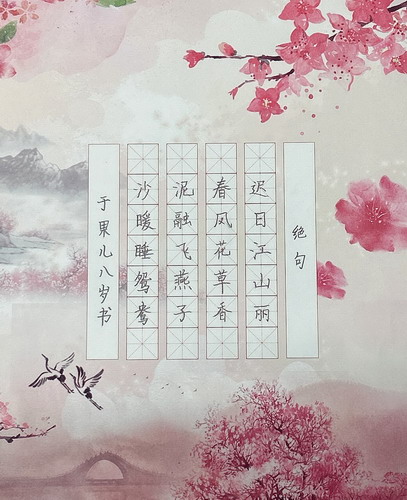 绝句
迟日江山丽
春风花草香
泥融飞燕子
沙暖睡鸳鸯
于果儿八岁书